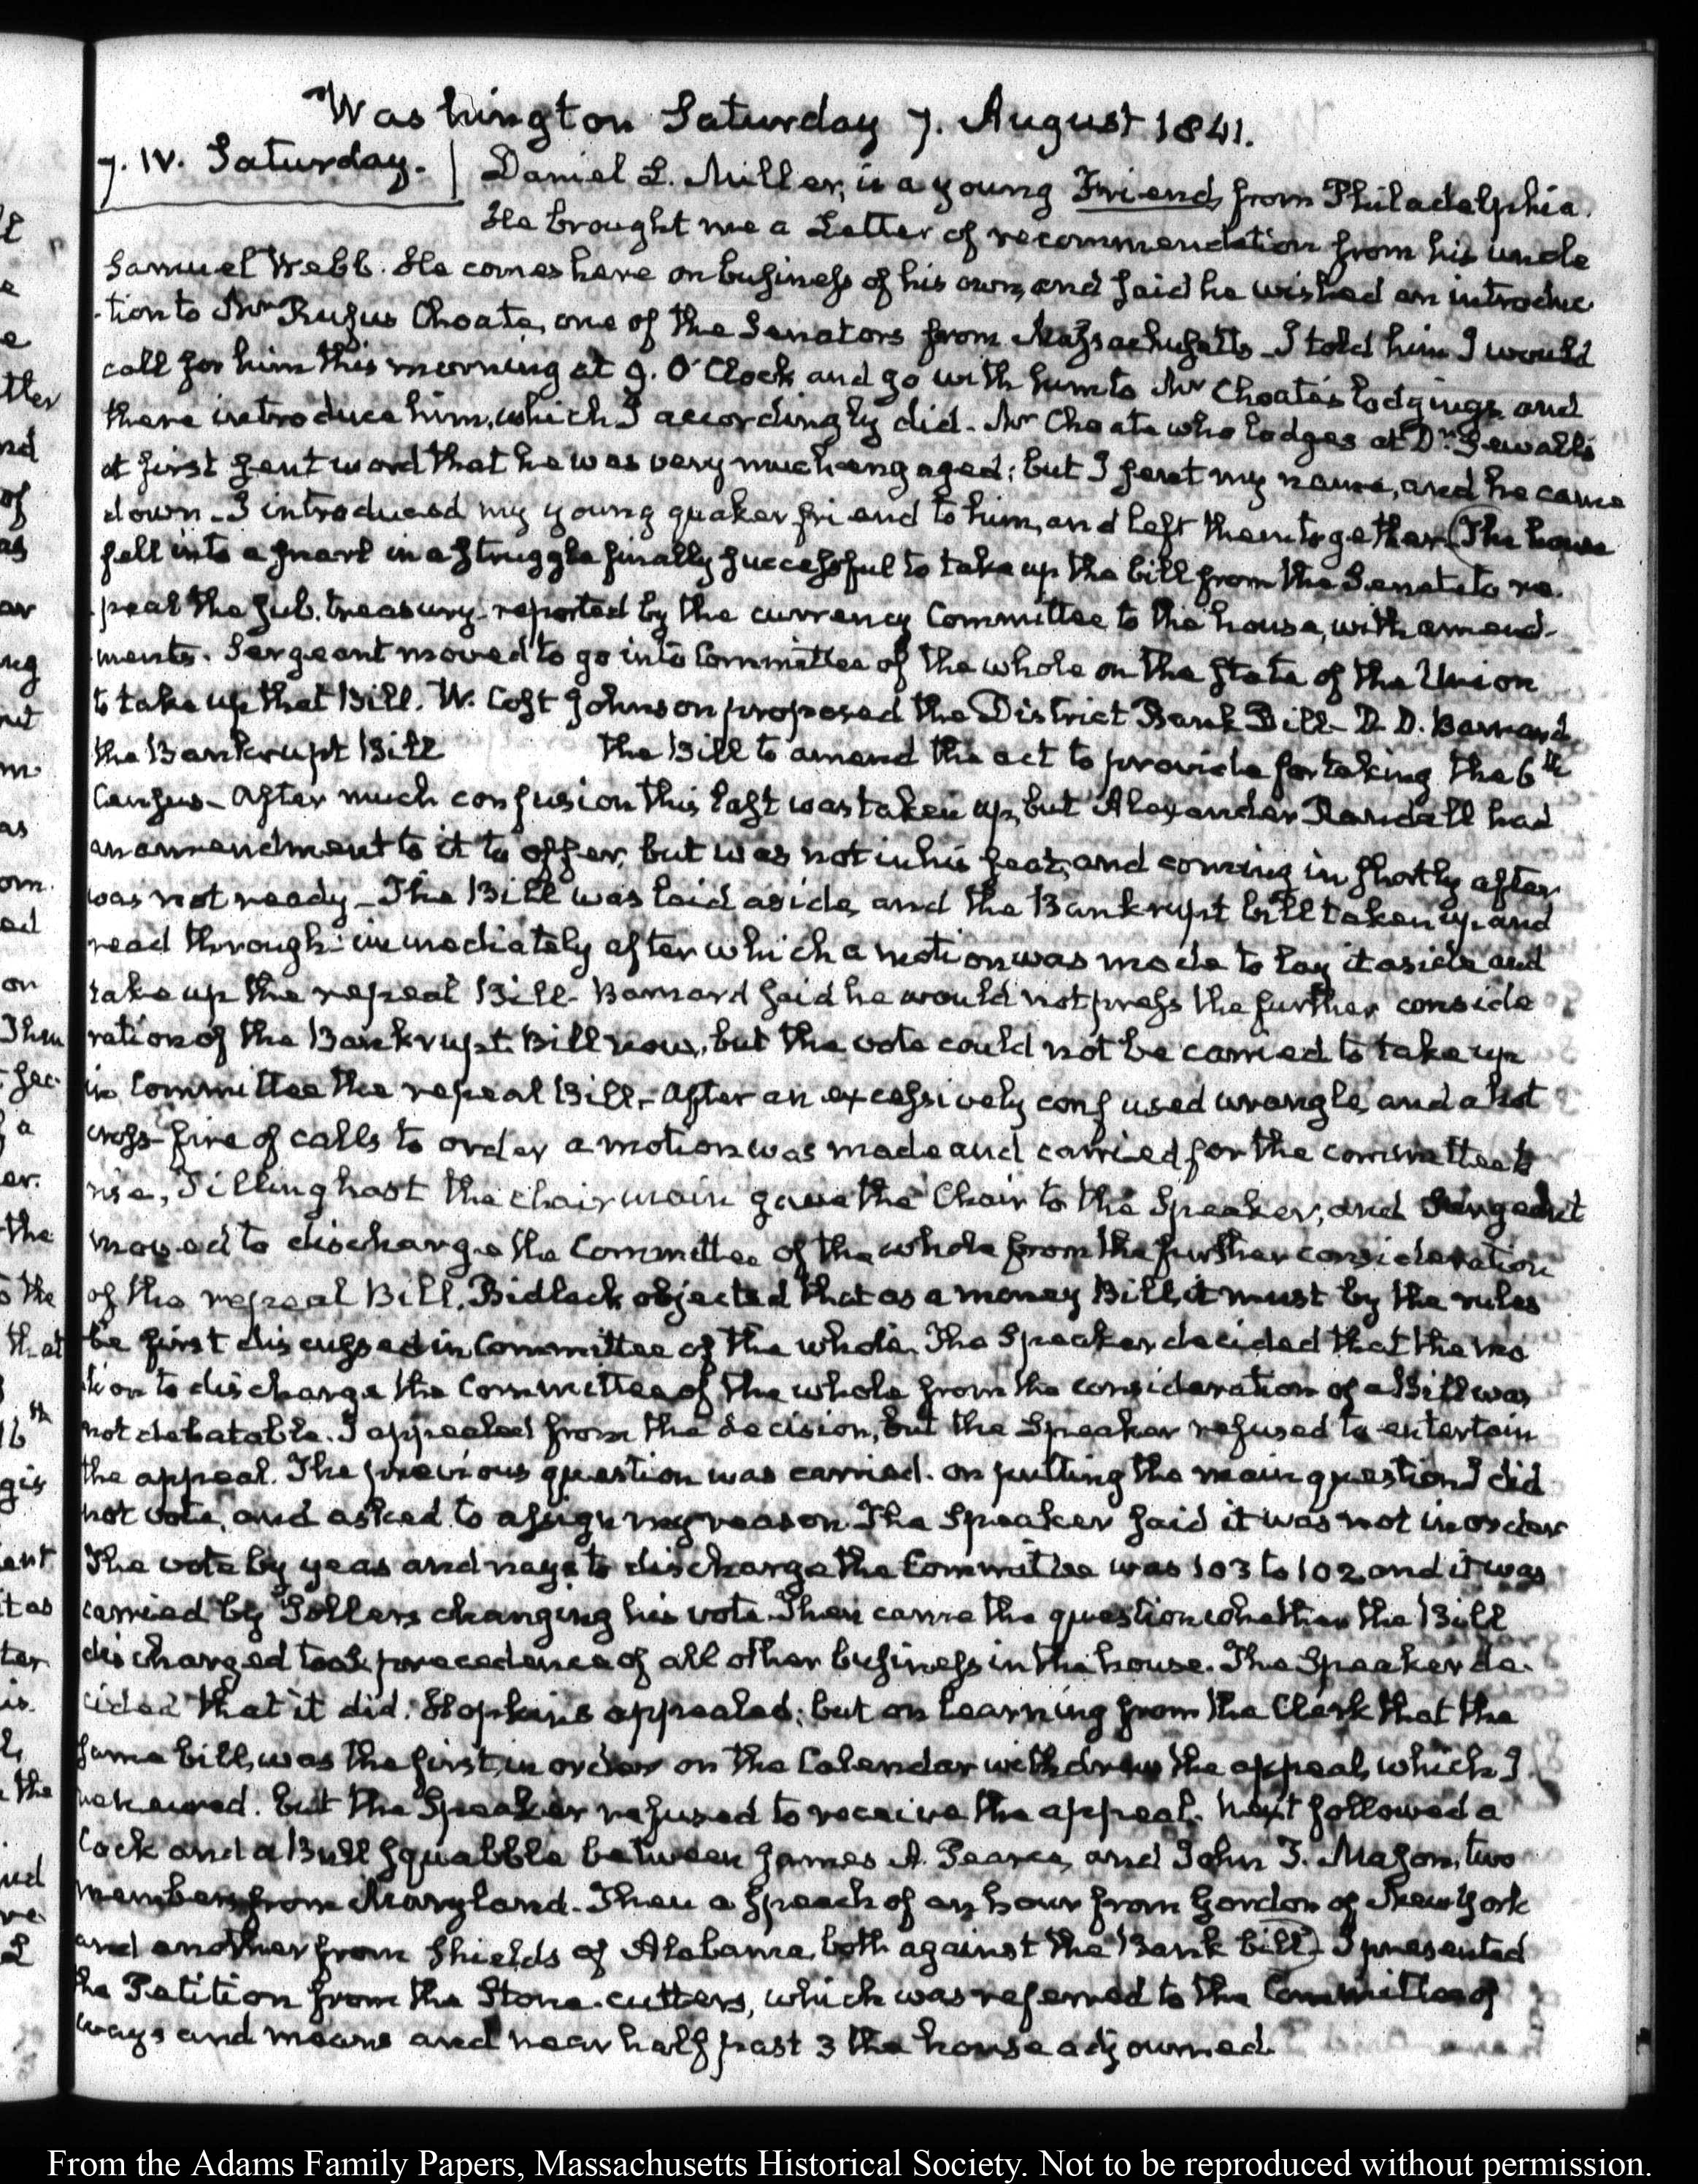 Washington Saturday 7. August 1841.
7. IV. Saturday. | Daniel L. Miller, is a young Friend, from Philadelphia.
He brought me a Letter of recommendation from his uncle
Samuel Webb. He comes here on business of his own, and said he wished an introduc
-tion to Mr Rufus Choate, one of the Senators from Massachusetts. I told him I would
call for him this morning at 9. O'Clock and go with him to Mr Choate's lodgings and
there introduce him, which I accordingly did. Mr Choate who lodges at Dr Sewall's
at first sent word that he was very much engaged; but I sent my name, and he came
down. I introduced my young quaker friend to him, and left them together. (The house
fell into a snarl in a struggle finally successful to take up the bill from the Senate to re-
-peal the sub. treasury. reported by the currency Committee to the house, with amend-
-ments. Sergeant moved to go into Committee of the whole on the state of the Union
to take up that Bill. W. Cost Johnson proposed the District Bank Bill- D. D. Barnard
the Bankrupt Bill the Bill to amend the act to provide for taking the 6th
Census- After much confusion this last was taken up, but Alexander Randall had
an amendment to it to offer, but was not in his seat, and coming in shortly after
was not ready- The Bill was laid aside, and the Bankrupt bill taken up and
read through: immediately after which a motion was made to lay it aside and
take up the repeal Bill- Barnard said he would not press the further conside
ration of the Bankrupt Bill now, but the vote could not be carried to take up
in Committee the repeal Bill- After an excessively confused wrangle, and a hot
cross-fire of calls to order a motion was made and carried for the committee to
rise, Tillinghast the chairman gave the Chair to the Speaker, and Sergeant
moved to discharge the Committee of the whole from the further consideration
of the repeal Bill. Bidlack objected that as a money Bill, it must by the rules
be first discussed in Committee of the whole. The Speaker decided that the mo
tion to discharge the Committee of the whole from the consideration of a Bill was
not debatable. I appealed from the decision, but the Speaker refused to entertain
the appeal. The previous question was carried. on putting the main question I did
not vote, and asked to assign my reason. The Speaker said it was not in order
The vote by yeas and nays to discharge the Committee was 103 to 102 and it was
carried by Sollers changing his vote. Then came the question whether the Bill
discharged took precedence of all other business in the house. The Speaker de-
cided that it did. Hopkins appealed; but on learning from the Clerk that the
same bill, was the first, in order on the Calendar withdrew the appeal, which I
renewed. but the Speaker refused to receive the appeal. Next followed a
Cock and a Bull squabble between James A. Pearce, and John T. Mason, two
members from Maryland. Then a speech of an hour from Gordon of New York
and another from Shields of Alabama, both against the Bank bill) I presented
the Petition from the Stone-cutters, which was referred to the Committee of
ways and means and near half past 3 the house adjourned.
From the Adams Family Papers, Massachusetts Historical Society. Not to be reproduced without permission.